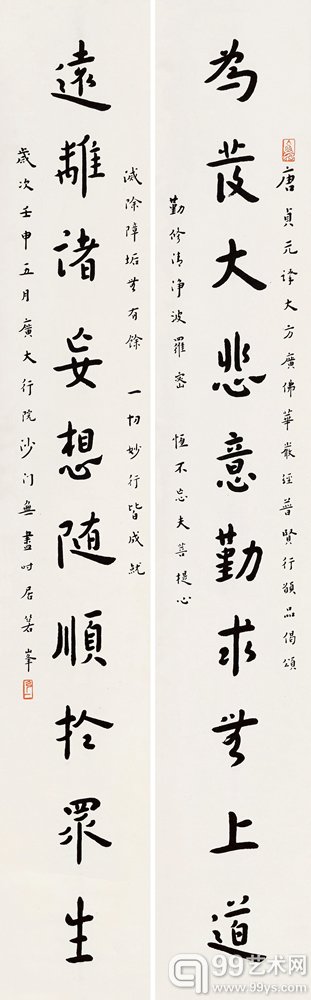 唐貞元譯大方廣佛華嚴經普賢行願品偈頌
為發大悲意勤求無上道
勤修清淨波羅密 恒不忘失菩提心
滅除障垢無有餘 一切妙行皆成就
遠離諸妄想随順於眾生
歲次壬申五月廣大行院沙门無盡時居峯
99艺术网
www.99ys.com